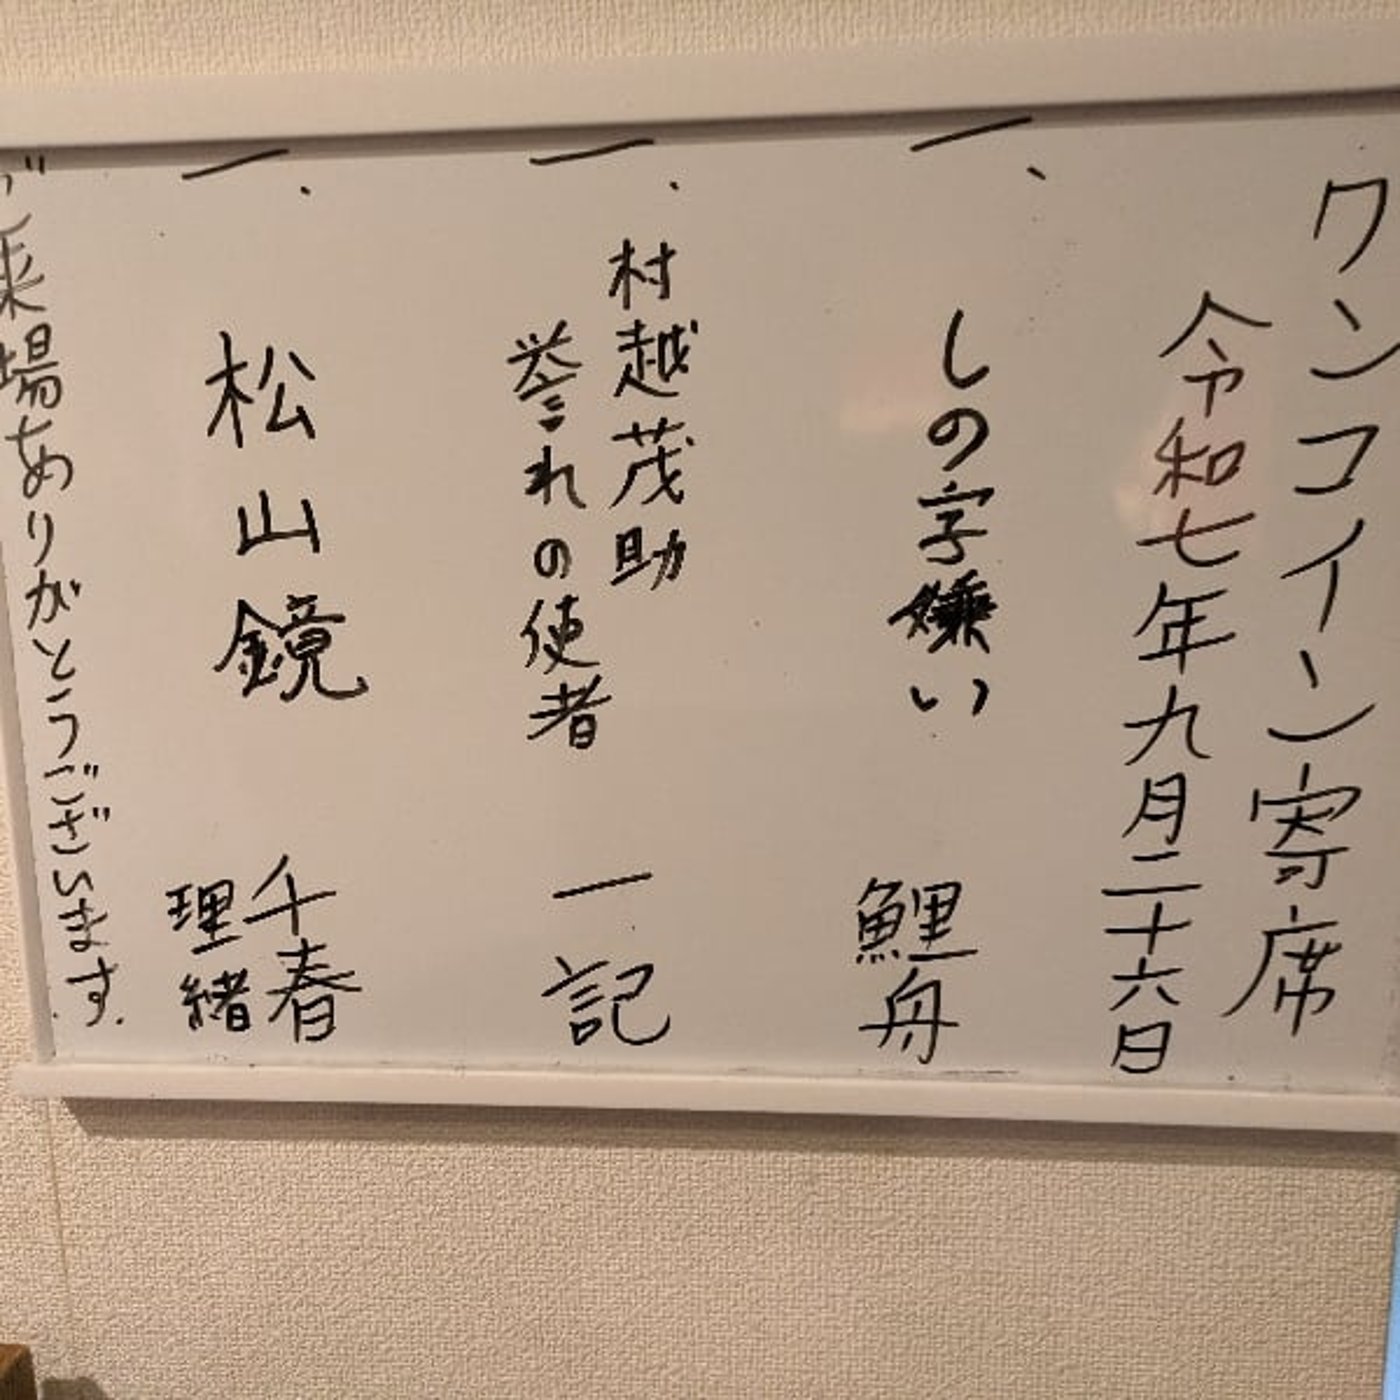 ワンコイン寄席
令和七年九月二十六日
一、しの字嫌い 鯉舟
一、村越茂助
誉れの使者 一記
一、松山鏡 千春
理緒
ご来場ありがとうございます.